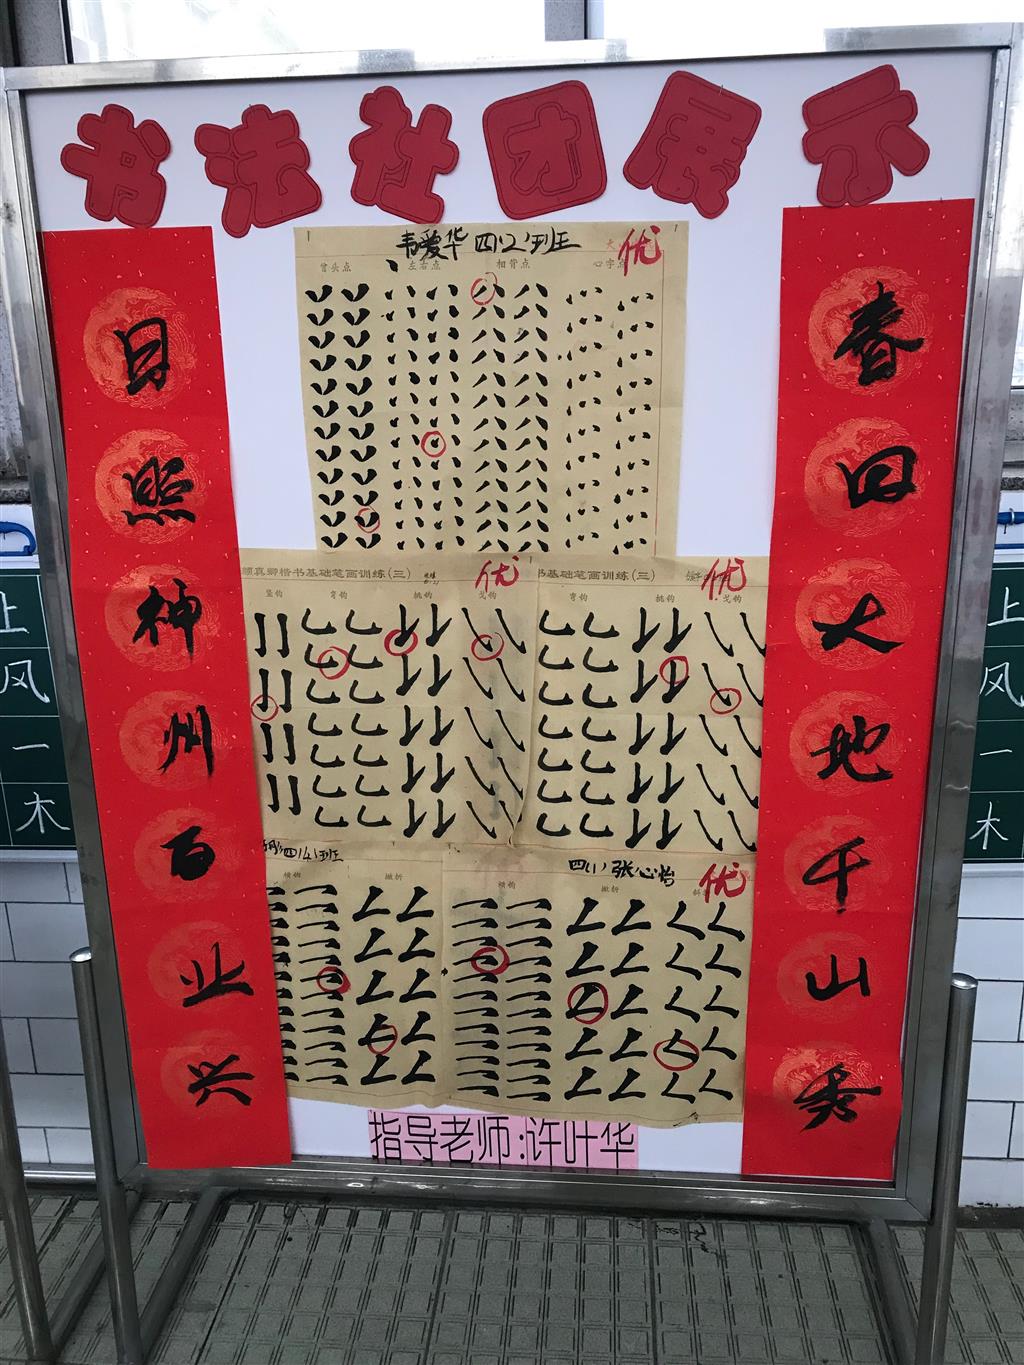 书法社团展示
春回大地千山秀
日照神州百业兴
韦爱华 四(2)班
优
曾头点 左右点 相背点 心字点
颜真卿楷书基础笔画训练(三)
优
竖钩 弯钩 挑钩 戈钩
书基础笔画训练(三)
优
弯钩 挑钩 戈钩
四(4)班
横钩 撇折
四(1)张心怡
优
横钩 撇折
指导老师:许叶华
上
风
一
木
上
风
一
木